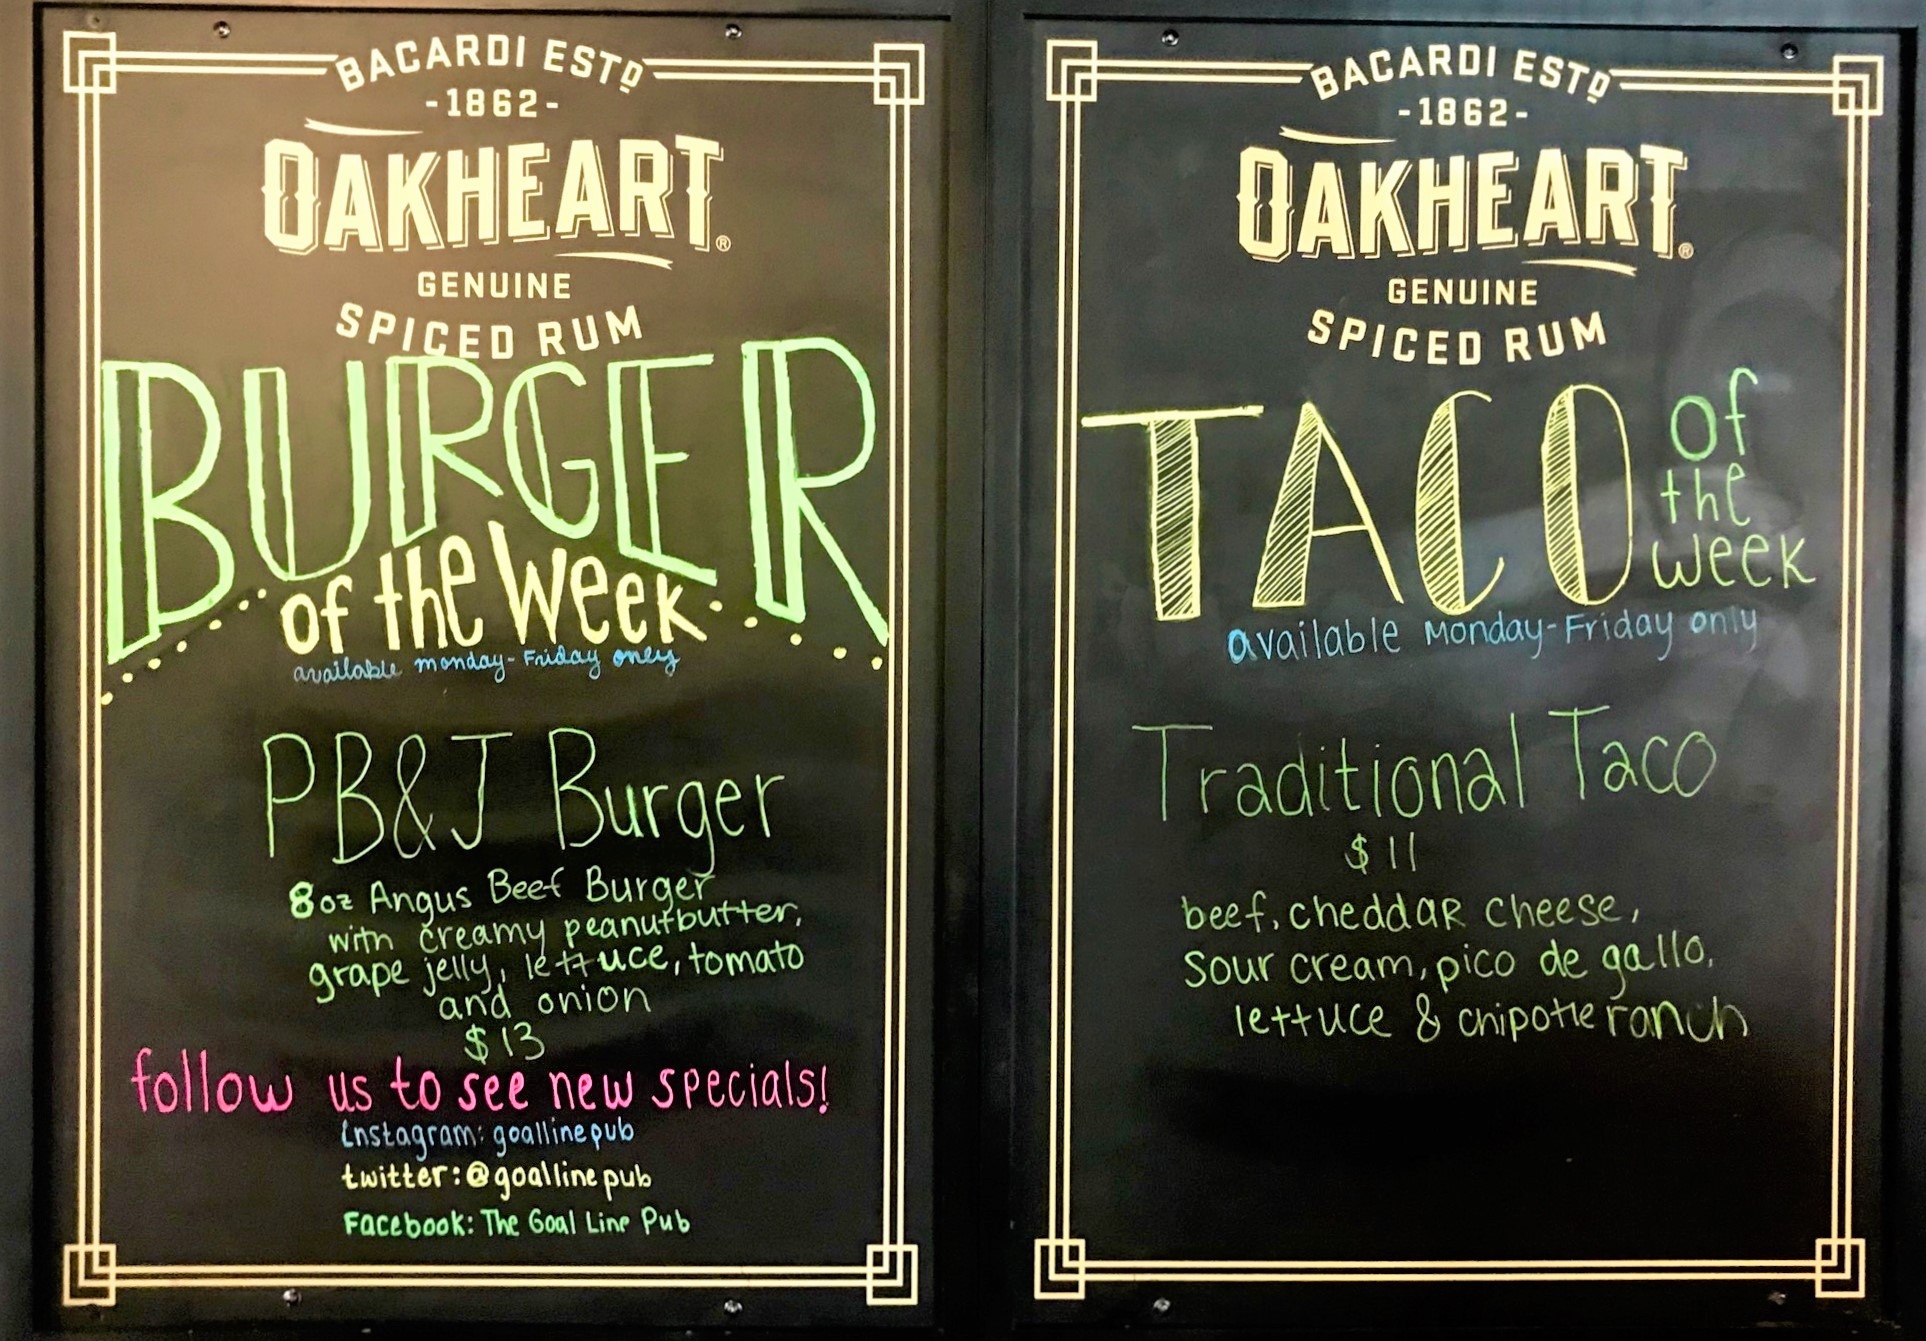 BACARDI ESTD
-1862-
OAKHEART®
GENUINE
SPICED RUM
BURGER
of the Week
available monday-Friday only
PB&J Burger
8oz Angus Beef Burger
with creamy peanutbutter,
grape jelly, lettuce, tomato
and onion
$13
follow us to see new specials!
Instagram: goallinepub
twitter: @goallinepub
Facebook: The Goal Line Pub
BACARDI ESTD
-1862-
OAKHEART®
GENUINE
SPICED RUM
TACO of the week
available Monday-Friday only
Traditional Taco
$11
beef, cheddar cheese,
sour cream, pico de gallo,
lettuce & chipotle ranch